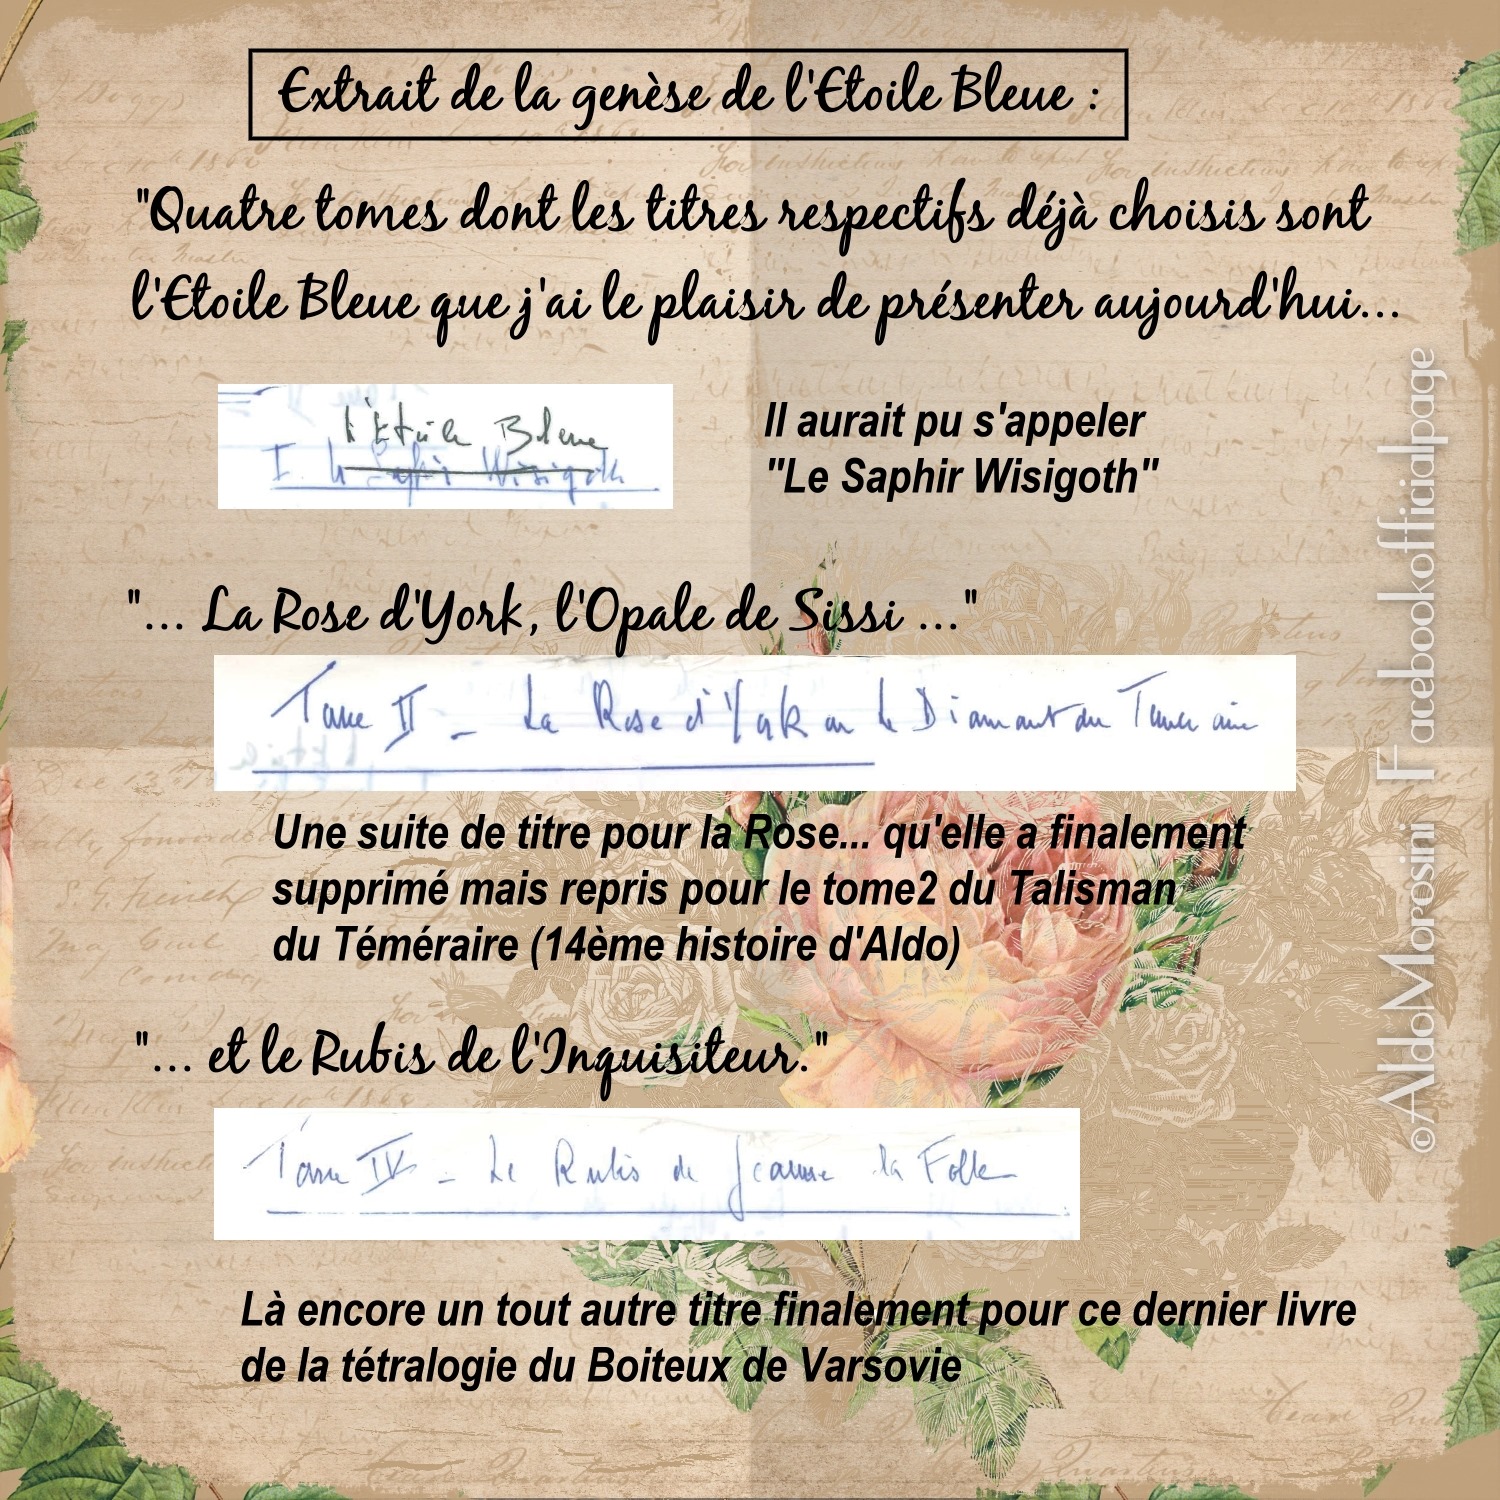 Extrait de la genèse de l'Etoile Bleue :
"Quatre tomes dont les titres respectifs déjà choisis sont
l'Etoile Bleue que j'ai le plaisir de présenter aujourd'hui...
l'Etoile Bleue
I. Le Saphir Wisigoth
Il aurait pu s'appeler
"Le Saphir Wisigoth"
"... La Rose d'York, l'Opale de Sissi ..."
Tome II - La Rose d'York ou le Diamant du Téméraire
Une suite de titre pour la Rose... qu'elle a finalement
supprimé mais repris pour le tome2 du Talisman
du Téméraire (14ème histoire d'Aldo)
"... et le Rubis de l'Inquisiteur."
Tome IV - Le Rubis de Jeanne la Folle
Là encore un tout autre titre finalement pour ce dernier livre
de la tétralogie du Boiteux de Varsovie
©AldoMorosini Facebookofficialpage